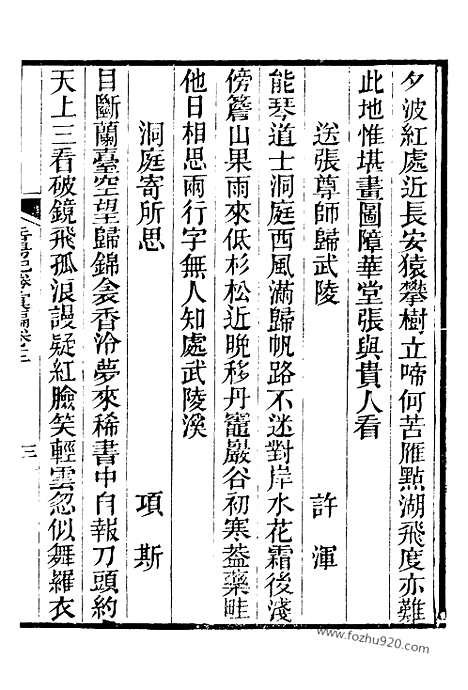 夕波紅處近長安猿攀樹立啼何苦雁點湖飛度亦難
此地惟堪畫圖障華堂張與貴人看
送張尊師歸武陵 許渾
能琴道士洞庭西風滿歸帆路不迷對岸水花霜後淺
傍簷山果雨來低杉松近晚移丹竈巖谷初寒葢藥畦
他日相思兩行字無人知處武陵溪
洞庭寄所思 項斯
目斷蘭臺空望歸錦衾香冷夢來稀書中自報刀頭約
天上三看破鏡飛孤浪謾疑紅臉笑輕雲忽似舞羅衣
三
www.fozhu920.com